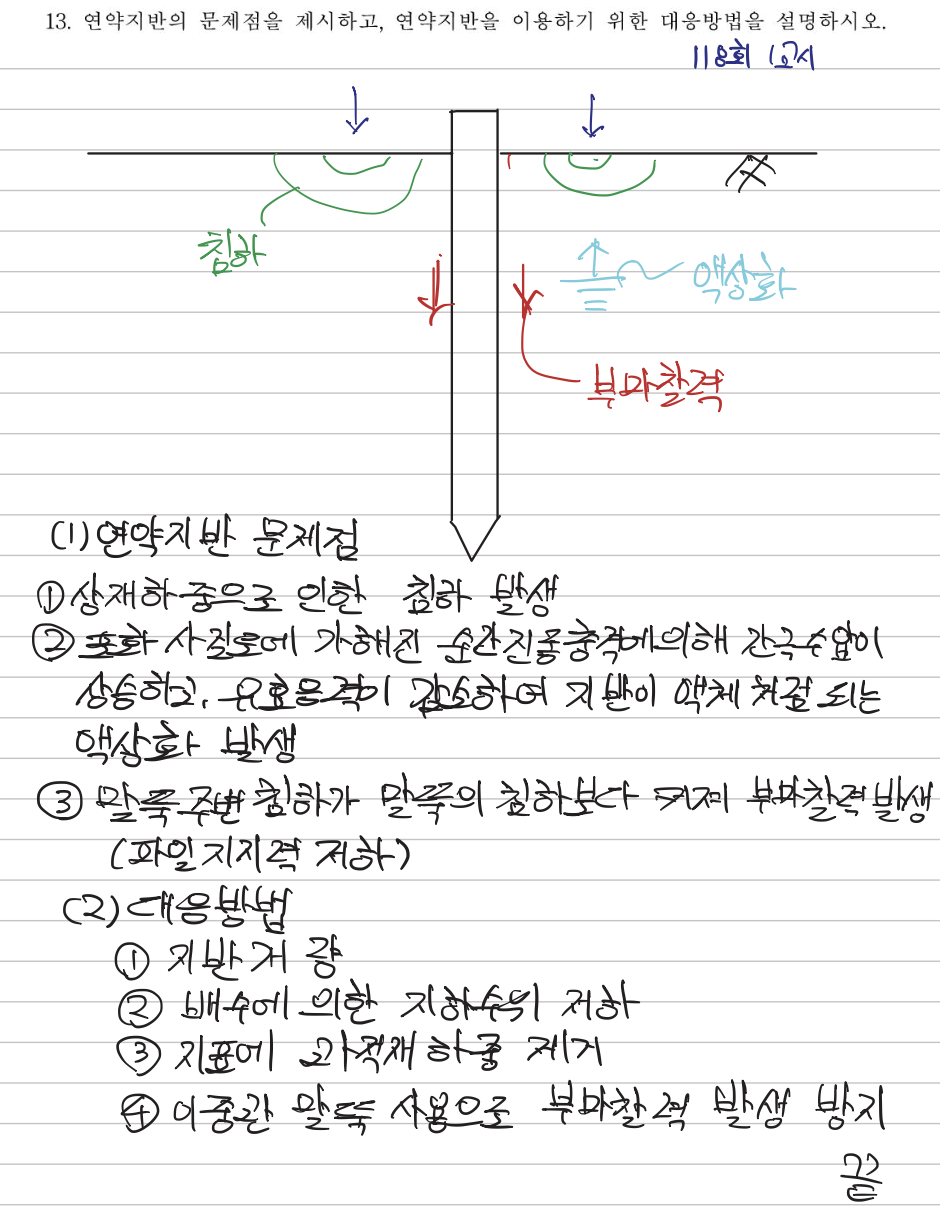 13. 연약지반의 문제점을 제시하고, 연약지반을 이용하기 위한 대응방법을 설명하시오.
118회 1교시
침하
액상화
부마찰력
(1) 연약지반 문제점
① 상재하중으로 인한 침하 발생
② 포화 사질토에 가해진 순간진동충격에의해 간극수압이
상승하고, 유효응력이 감소하여 지반이 액체처럼 되는
액상화 발생
③ 말뚝주변침하가 말뚝의 침하보다 커져 부마찰력발생
(파일지지력 저하)
(2) 대응방법
① 지반개량
② 배수에 의한 지하수위 저하
③ 지표에 과적재하중 제거
④ 이중관 말뚝 사용으로 부마찰력 발생 방지
끝